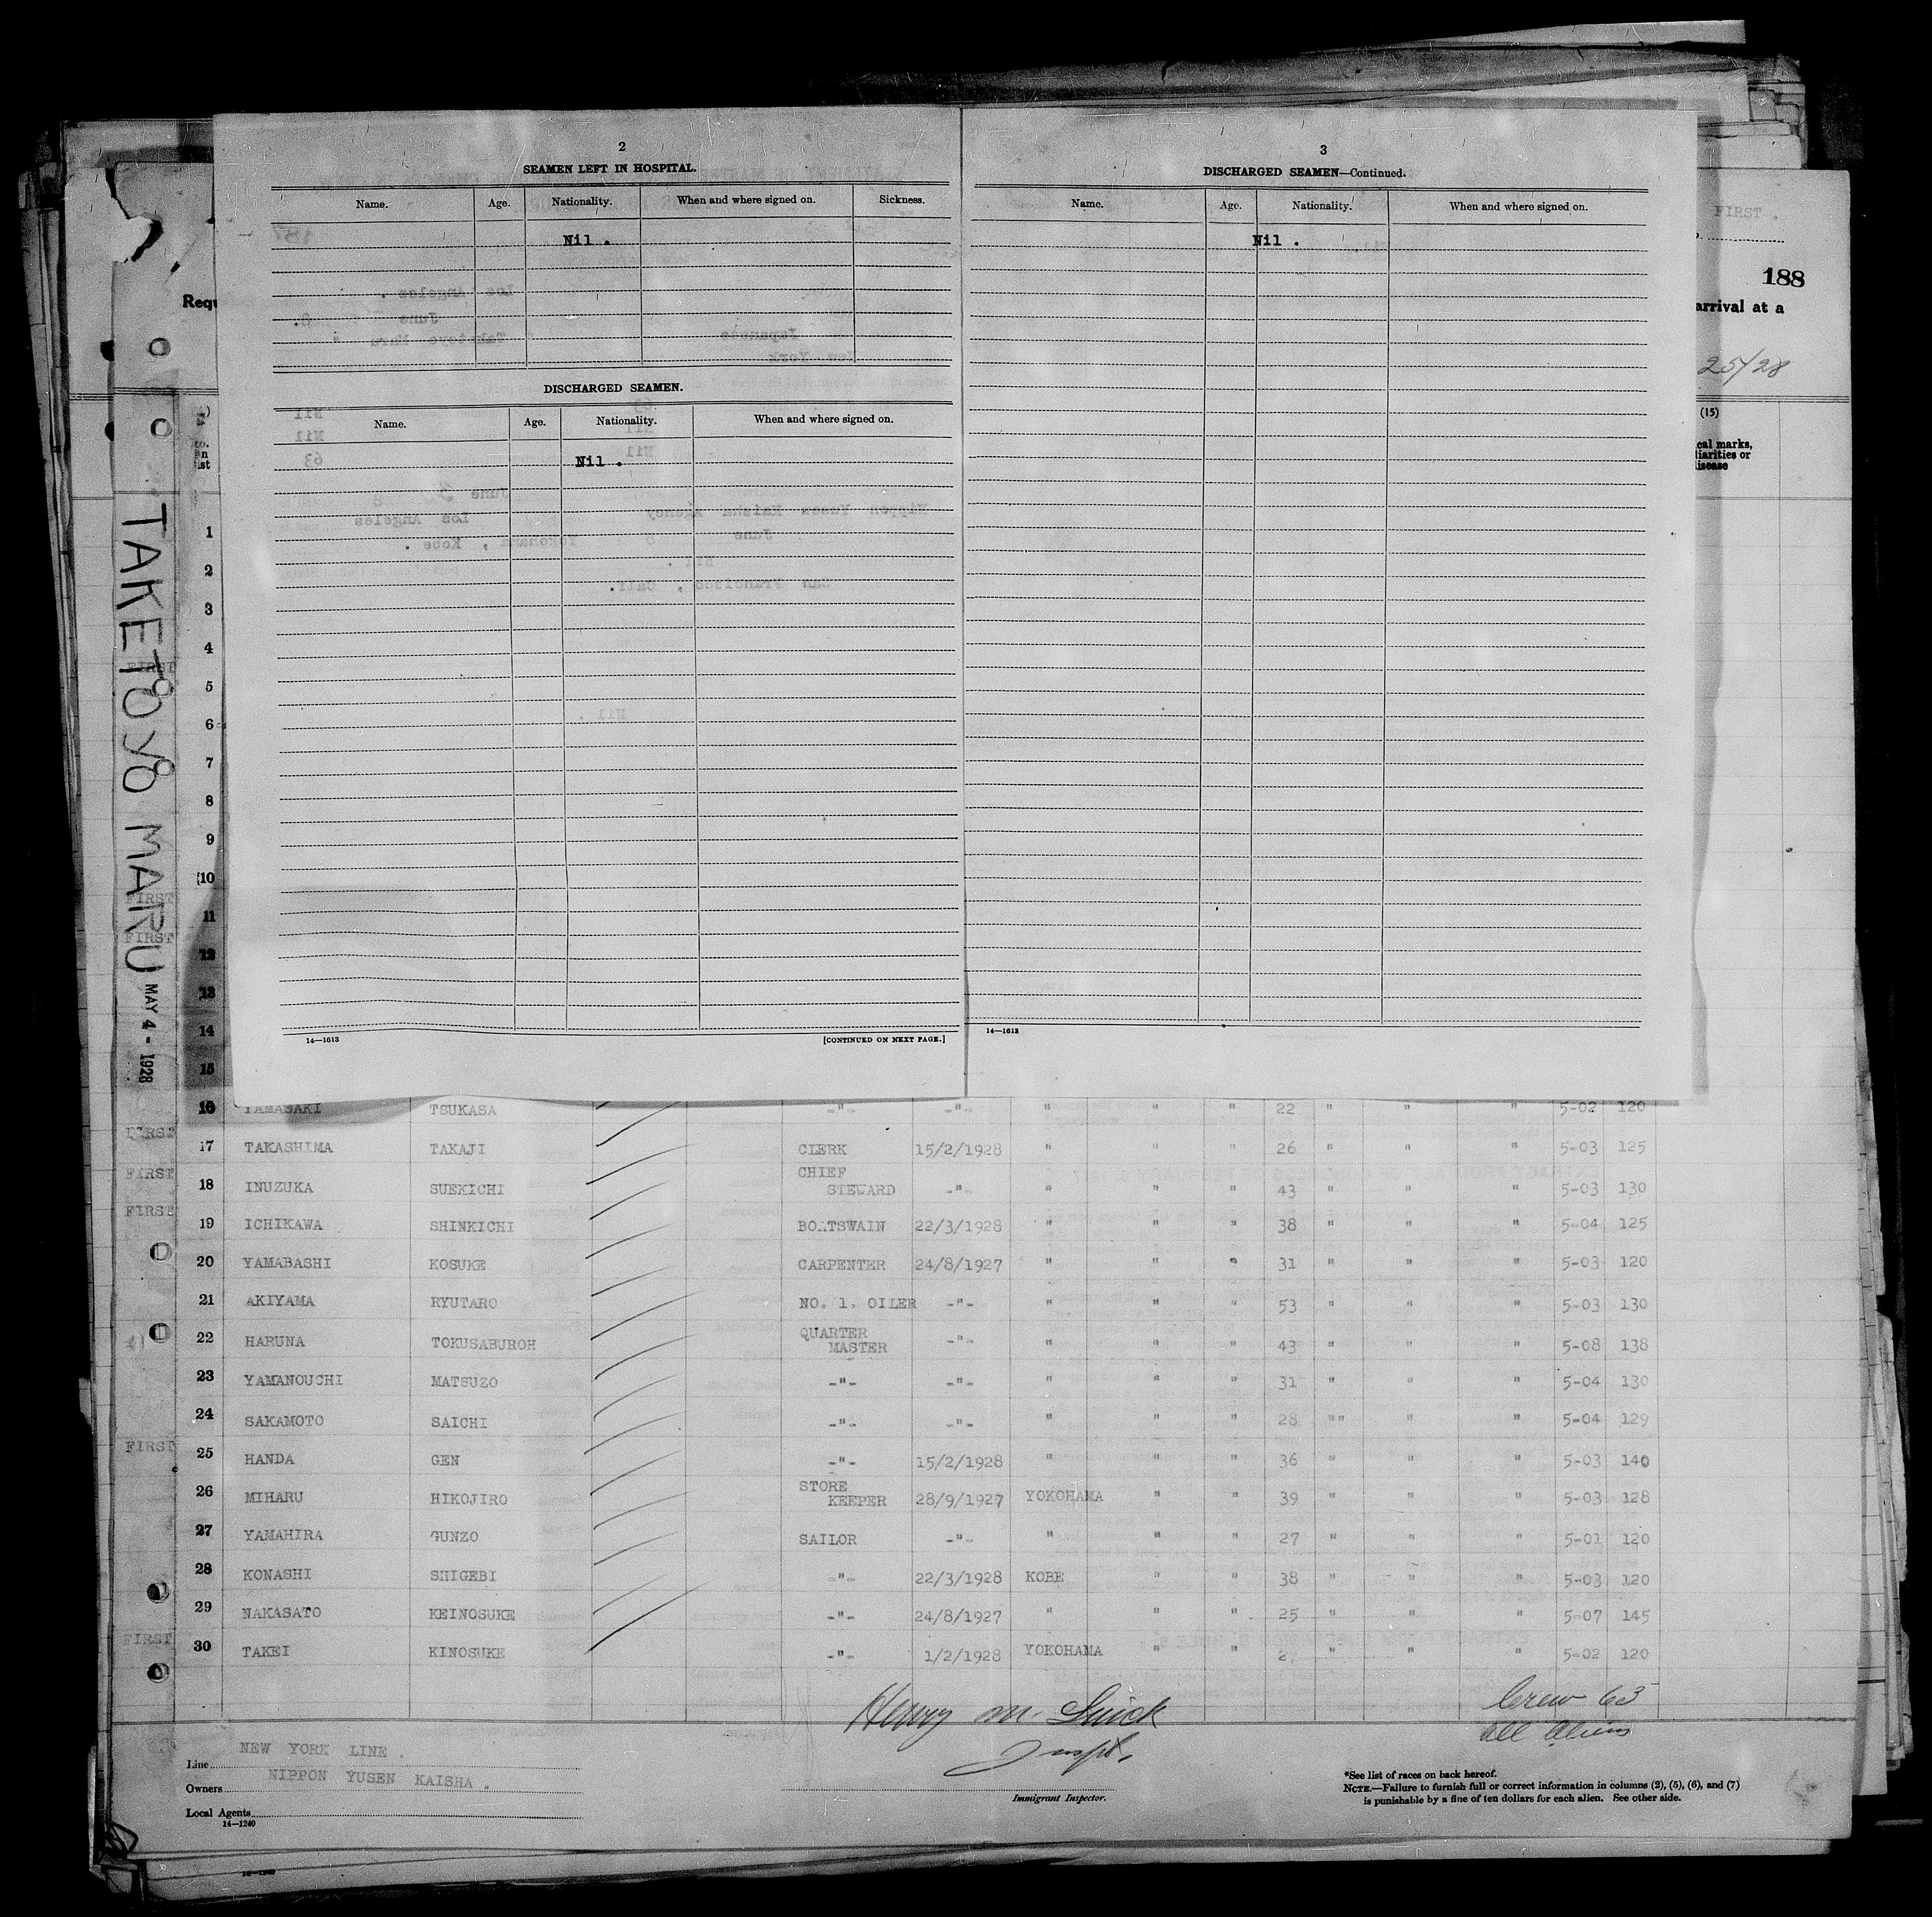 2
SEAMEN LEFT IN HOSPITAL.
Name. Age. Nationality. When and where signed on. Sickness.
Nil .
DISCHARGED SEAMEN.
Name. Age. Nationality. When and where signed on.
Nil .
14—1613 [CONTINUED ON NEXT PAGE.]
3
DISCHARGED SEAMEN—Continued.
Name. Age. Nationality. When and where signed on.
Nil .
14—1613
FIRST .
188
Requ
arrival at a
25/28
(15)
cal marks,
liarities or
disease
TAKETOYO MARU MAY 4 - 1928
1
2
3
4
FIRST
5
6
7
8
9
10
FIRST
11
FIRST
12
13
14
15
16 YAMASAKI TSUKASA -"- -"- " " " 22 " " " 5-02 120
FIRST
17 TAKASHIMA TAKAJI CLERK 15/2/1928 " " " 26 " " " 5-03 125
FIRST
18 INUZUKA SUEKICHI CHIEF STEWARD -"- " " " 43 " " " 5-03 130
FIRST
19 ICHIKAWA SHINKICHI BOATSWAIN 22/3/1928 " " " 38 " " " 5-04 125
20 YAMABASHI KOSUKE CARPENTER 24/8/1927 " " " 31 " " " 5-03 120
21 AKIYAMA RYUTARO NO. 1. OILER -"- " " " 53 " " " 5-03 130
22 HARUNA TOKUSABUROH QUARTER MASTER -"- " " " 43 " " " 5-08 138
23 YAMANOUCHI MATSUZO -"- -"- " " " 31 " " " 5-04 130
24 SAKAMOTO SAICHI -"- -"- " " " 28 "" " " 5-04 129
FIRST
25 HANDA GEN -"- 15/2/1928 " " " 36 " " " 5-03 140
26 MIHARU HIKOJIRO STORE KEEPER 28/9/1927 YOKOHAMA " " 39 " " " 5-03 128
27 YAMAHIRA GUNZO SAILOR -"- " " " 27 " " " 5-01 120
28 KONASHI SHIGEBI -"- 22/3/1928 KOBE " " 38 " " " 5-03 120
29 NAKASATO KEINOSUKE -"- 24/8/1927 " " " 25 " " " 5-07 145
FIRST
30 TAKEI KINOSUKE -"- 1/2/1928 YOKOHAMA " " 27 " " " 5-02 120
Henry M.
Inspt.
Crew 63
all Aliens
Line NEW YORK LINE .
Owners NIPPON YUSEN KAISHA .
Local Agents
14—1240
Immigrant Inspector.
*See list of races on back hereof.
NOTE.—Failure to furnish full or correct information in columns (2), (5), (6), and (7)
is punishable by a fine of ten dollars for each alien. See other side.